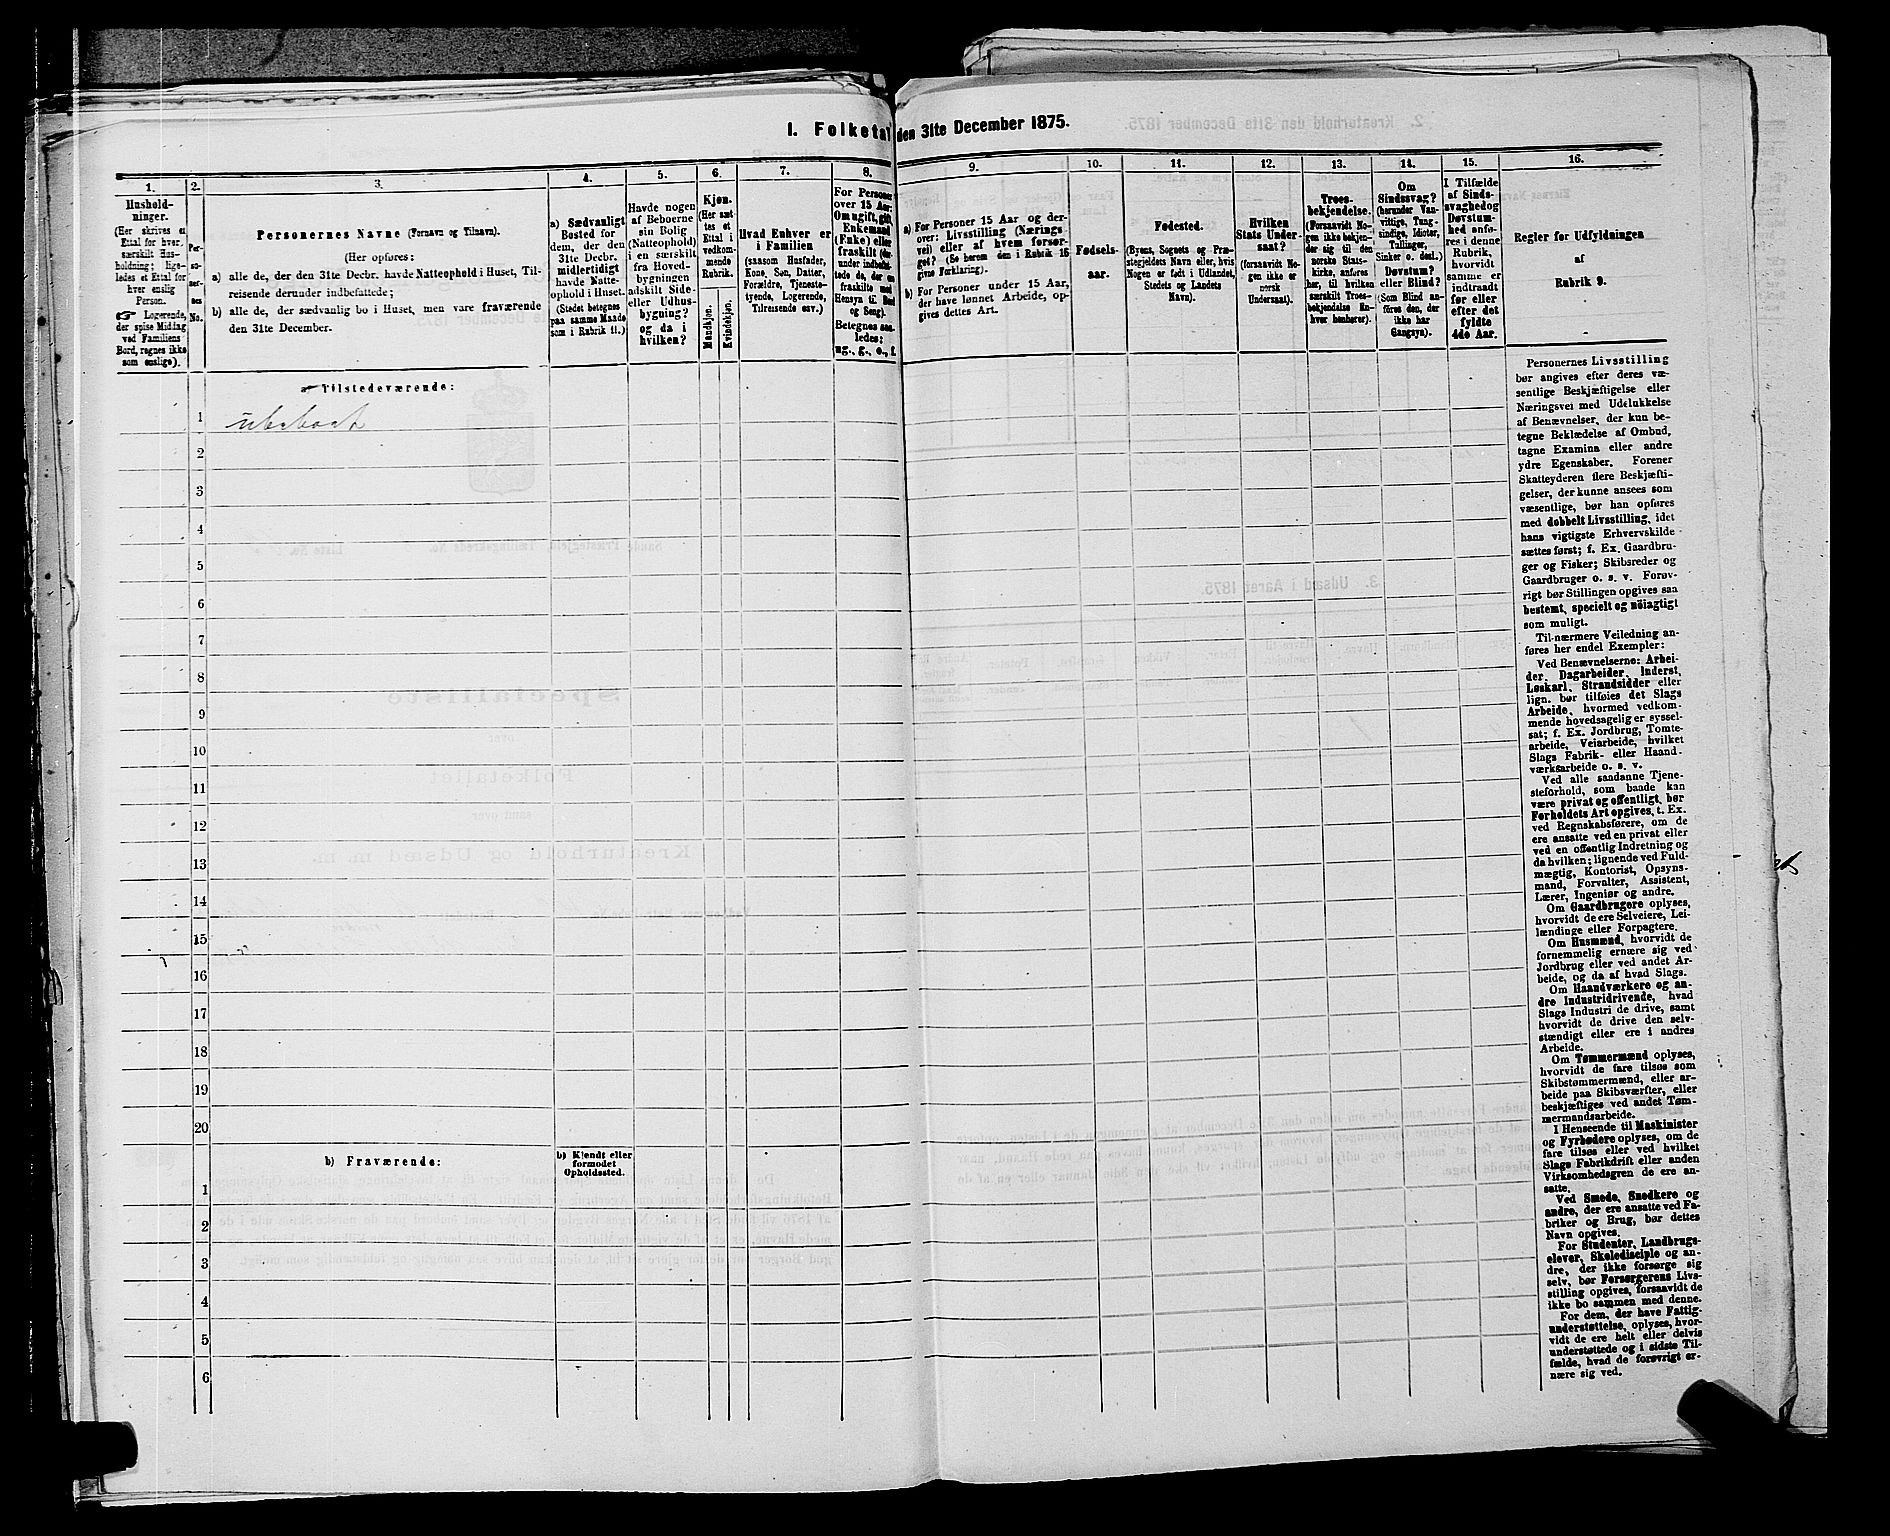 I. Folketal den 31te December 1875.
1.
Hushold-
ninger.
(Her skrives et
Ettal for hver
særskilt Hus-
holdning; lige-
ledes et Ettal for
hver enslig
Person.
☞ Logerende,
der spise Middag
ved Familiens
Bord, regnes ikke
som enslige).
2.
Per-
so-
ner-
nes
No.
3.
Personernes Navne (Fornavn og Tilnavn).
(Her opføres:
a) alle de, der den 31te Decbr. havde Natteophold i Huset, Til-
reisende derunder indbefattede;
b) alle de, der sædvanlig bo i Huset, men vare fraværende
den 31te December.
4.
a) Sædvanligt
Bosted for
dem, der den
31te Decbr.
midlertidigt
havde Natte-
ophold i Huset.
(Stedet betegnes
paa samme Maade
som i Rubrik 11.)
5.
Havde nogen
af Beboerne
sin Bolig
(Natteophold)
i en særskilt
fra Hoved-
bygningen
adskilt Side-
eller Udhus-
bygning?
og da i
hvilken?
6.
Kjøn.
(Her sæt-
tes et
Ettal i
vedkom-
mende
Rubrik.
Mandkjøn.
Kvindekjøn.
7.
Hvad Enhver er
i Familien
(saasom Husfader,
Kone, Søn, Datter,
Forældre, Tjeneste-
tyende, Logerende,
Tilreisende osv.)
8.
For Personer
over 15 Aar:
Om ugift, gift,
Enkemand
(Enke) eller
fraskilt (der-
under indbefat-
tede de, der ere
fraskilte med
Hensyn til Bord
og Seng).
Betegnes saa-
ledes:
ug., g., e., f.
9.
a) For Personer 15 Aar og der-
over: Livsstilling (Nærings-
vei) eller af hvem forsør-
get? (Se herom den i Rubrik 16
givne Forklaring).
b) For Personer under 15 Aar,
der have lønnet Arbeide, op-
gives dettes Art.
10.
Fødsels-
aar.
11.
Fødested.
(Byens, Sognets og Præ-
stegjeldets Navn eller, hvis
Nogen er født i Udlandet,
Stedets og Landets
Navn).
12.
Hvilken
Stats Under-
saat?
(forsaavidt No-
gen ikke er
norsk
Undersaat).
13.
Troes-
bekjendelse.
(Forsaavidt No-
gen ikke bekjen-
der sig til den
norske Stats-
kirke, anføres
her, til hvilken
særskilt Troes-
bekjendelse En-
hver henhører).
14.
Om
Sindssvag?
(herunder Van-
vittige, Tung-
sindige, Idioter,
Tullinger,
Sinker o. desl.)
Døvstum?
eller Blind?
(Som Blind an-
føres den, der
ikke har
Gangsyn).
15.
I Tilfælde
af Sinds-
svaghed og
Døvstum-
hed anfø-
res i denne
Rubrik,
hvorvidt
samme er
indtraadt
før eller
efter det
fyldte
4de Aar.
16.
Regler for Udfyldningen
af
Rubrik 9.
a) Tilstedeværende:
1 ubeboet
2
3
4
5
6
7
8
9
10
11
12
13
14
15
16
17
18
19
20
b) Fraværende:
b) Kjendt eller
formodet
Opholdssted.
1
2
3
4
5
6
Personernes Livsstilling
bør angives efter deres væ-
sentlige Beskjæftigelse eller
Næringsvei med Udelukkelse
af Benævnelser, der kun be-
tegne Beklædelse af Ombud,
tagne Examina eller andre
ydre Egenskaber. Forener
Skatteyderen flere Beskjæfti-
gelser, der kunne ansees som
væsentlige, bør han opføres
med dobbelt Livsstilling, idet
hans vigtigste Erhvervskilde
sættes først; f. Ex. Gaardbru-
ger og Fisker; Skibsreder og
Gaardbruger o. s. v. Forøv-
rigt bør Stillingen opgives saa
bestemt, specielt og nøiagtigt
som muligt.
Til nærmere Veiledning an-
føres her endel Exempler:
Ved Benævnelserne: Arbei-
der, Dagarbeider, Inderst,
Løskarl, Strandsidder eller
lign. bør tilføies det Slags
Arbeide, hvormed vedkom-
mende hovedsagelig er syssel-
sat; f. Ex. Jordbrug, Tomte-
arbeide, Veiarbeide, hvilket
Slags Fabrik- eller Haand-
værksarbeide o. s. v.
Ved alle saadanne Tjene-
steforhold, som baade kan
være privat og offentligt, bør
Forholdets Art opgives, t. Ex.
ved Regnskabsførere, om de
ere ansatte ved en privat eller
ved en offentlig Indretning og
da hvilken; lignende ved Fuld-
mægtig, Kontorist, Opsyns-
mand, Forvalter, Assistent,
Lærer, Ingeniør og andre.
Om Gaardbrugere oplyses,
hvorvidt de ere Selveiere, Lei-
lændinge eller Forpagtere.
Om Husmænd, hvorvidt de
fornemmelig ernære sig ved
Jordbrug eller ved andet Ar-
beide, og da af hvad Slags.
Om Haandværkere og an-
dre Industridrivende, hvad
Slags Industri de drive, samt
hvorvidt de drive den selv-
stændigt eller ere i andres
Arbeide.
Om Tømmermænd oplyses,
hvorvidt de fare tilsøs som
Skibstømmermænd, eller ar-
beide paa Skibsværfter, eller
beskjæftiges ved andet Tøm-
mermandsarbeide.
I Henseende til Maskinister
og Fyrbødere oplyses, om de
fare tilsøs eller ved hvilket
Slags Fabrikdrift eller anden
Virksomhedsgren de ere an-
satte.
Ved Smede, Snedkere og
andre, der ere ansatte ved Fa-
briker og Brug, bør dettes
Navn opgives.
For Studenter, Landbrugs-
elever, Skoledisciple og an-
dre, der ikke forsørge sig
selv, bør Forsørgerens Livs-
stilling opgives, forsaavidt de
ikke bo sammen med denne.
For dem, der have Fattig-
understøttelse, oplyses, hvor-
vidt de ere helt eller delvis
understøttede og i sidste Til-
fælde, hvad de forøvrigt er-
nære sig ved.